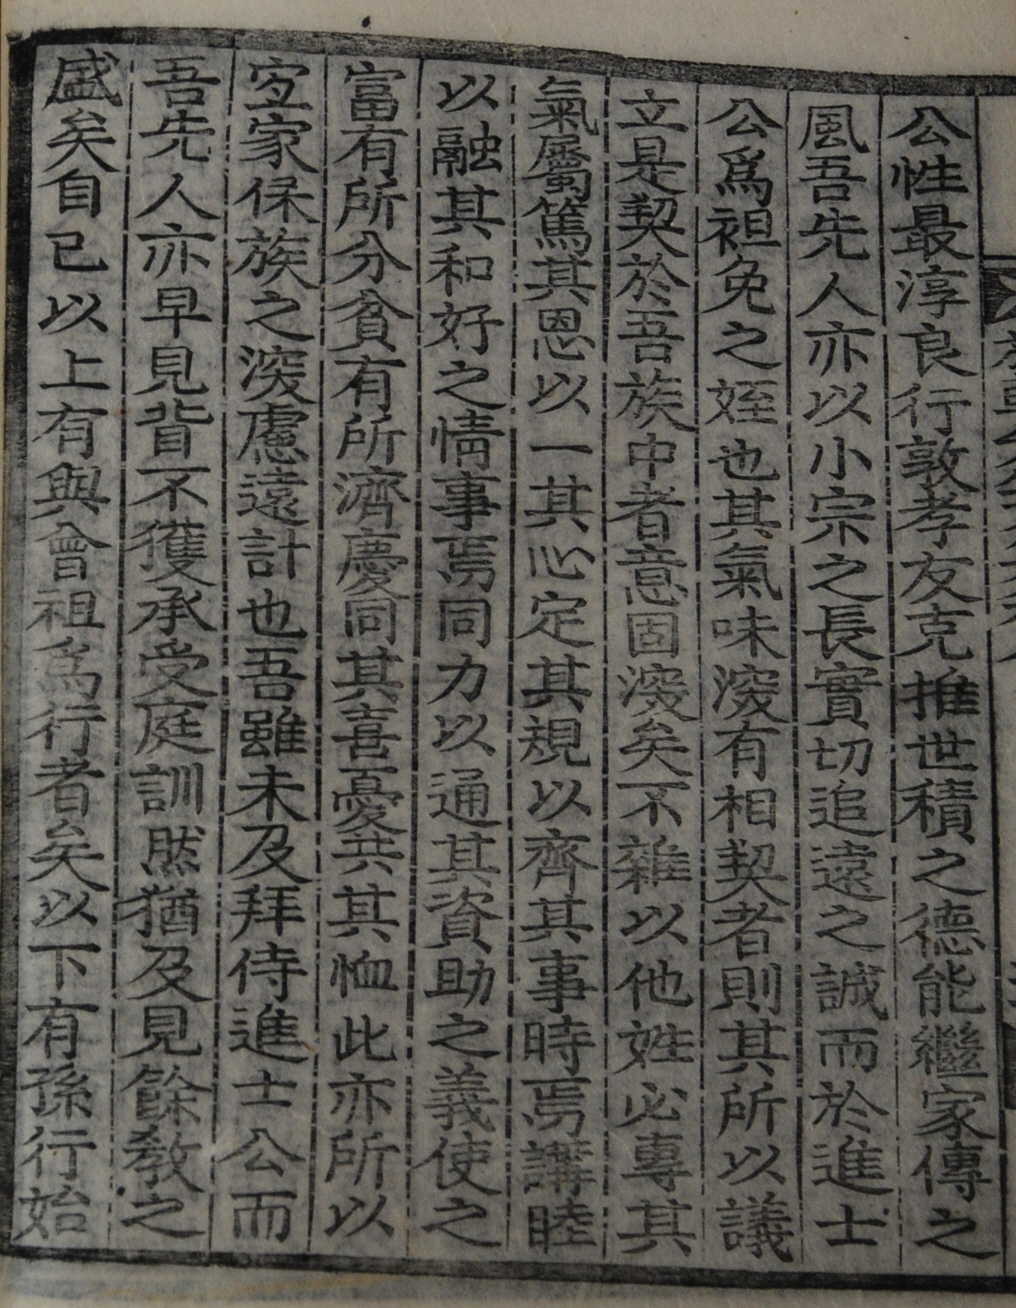 公性最淳良行敦孝友克推世積之德能繼家傳之
風吾先人亦以小宗之長實切追遠之誠而於進士
公爲袒免之姪也其氣味深有相契者則其所以議
立是契於吾族中者意固深矣不雜以他姓必專其
氣屬篤其恩以一其心定其規以齊其事時焉講睦
以融其和好之情事焉同力以通其資助之義使之
富有所分貧有所濟慶同其喜憂共其恤此亦所以
宜家保族之深慮遠計也吾雖未及拜侍進士公而
吾先人亦早見背不獲承受庭訓然猶及見餘敎之
盛矣自已以上有與曾祖爲行者矣以下有孫行始